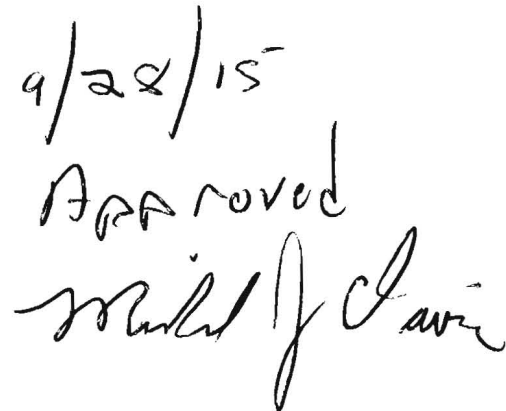 9/28/15
Approved
Michael J Davis